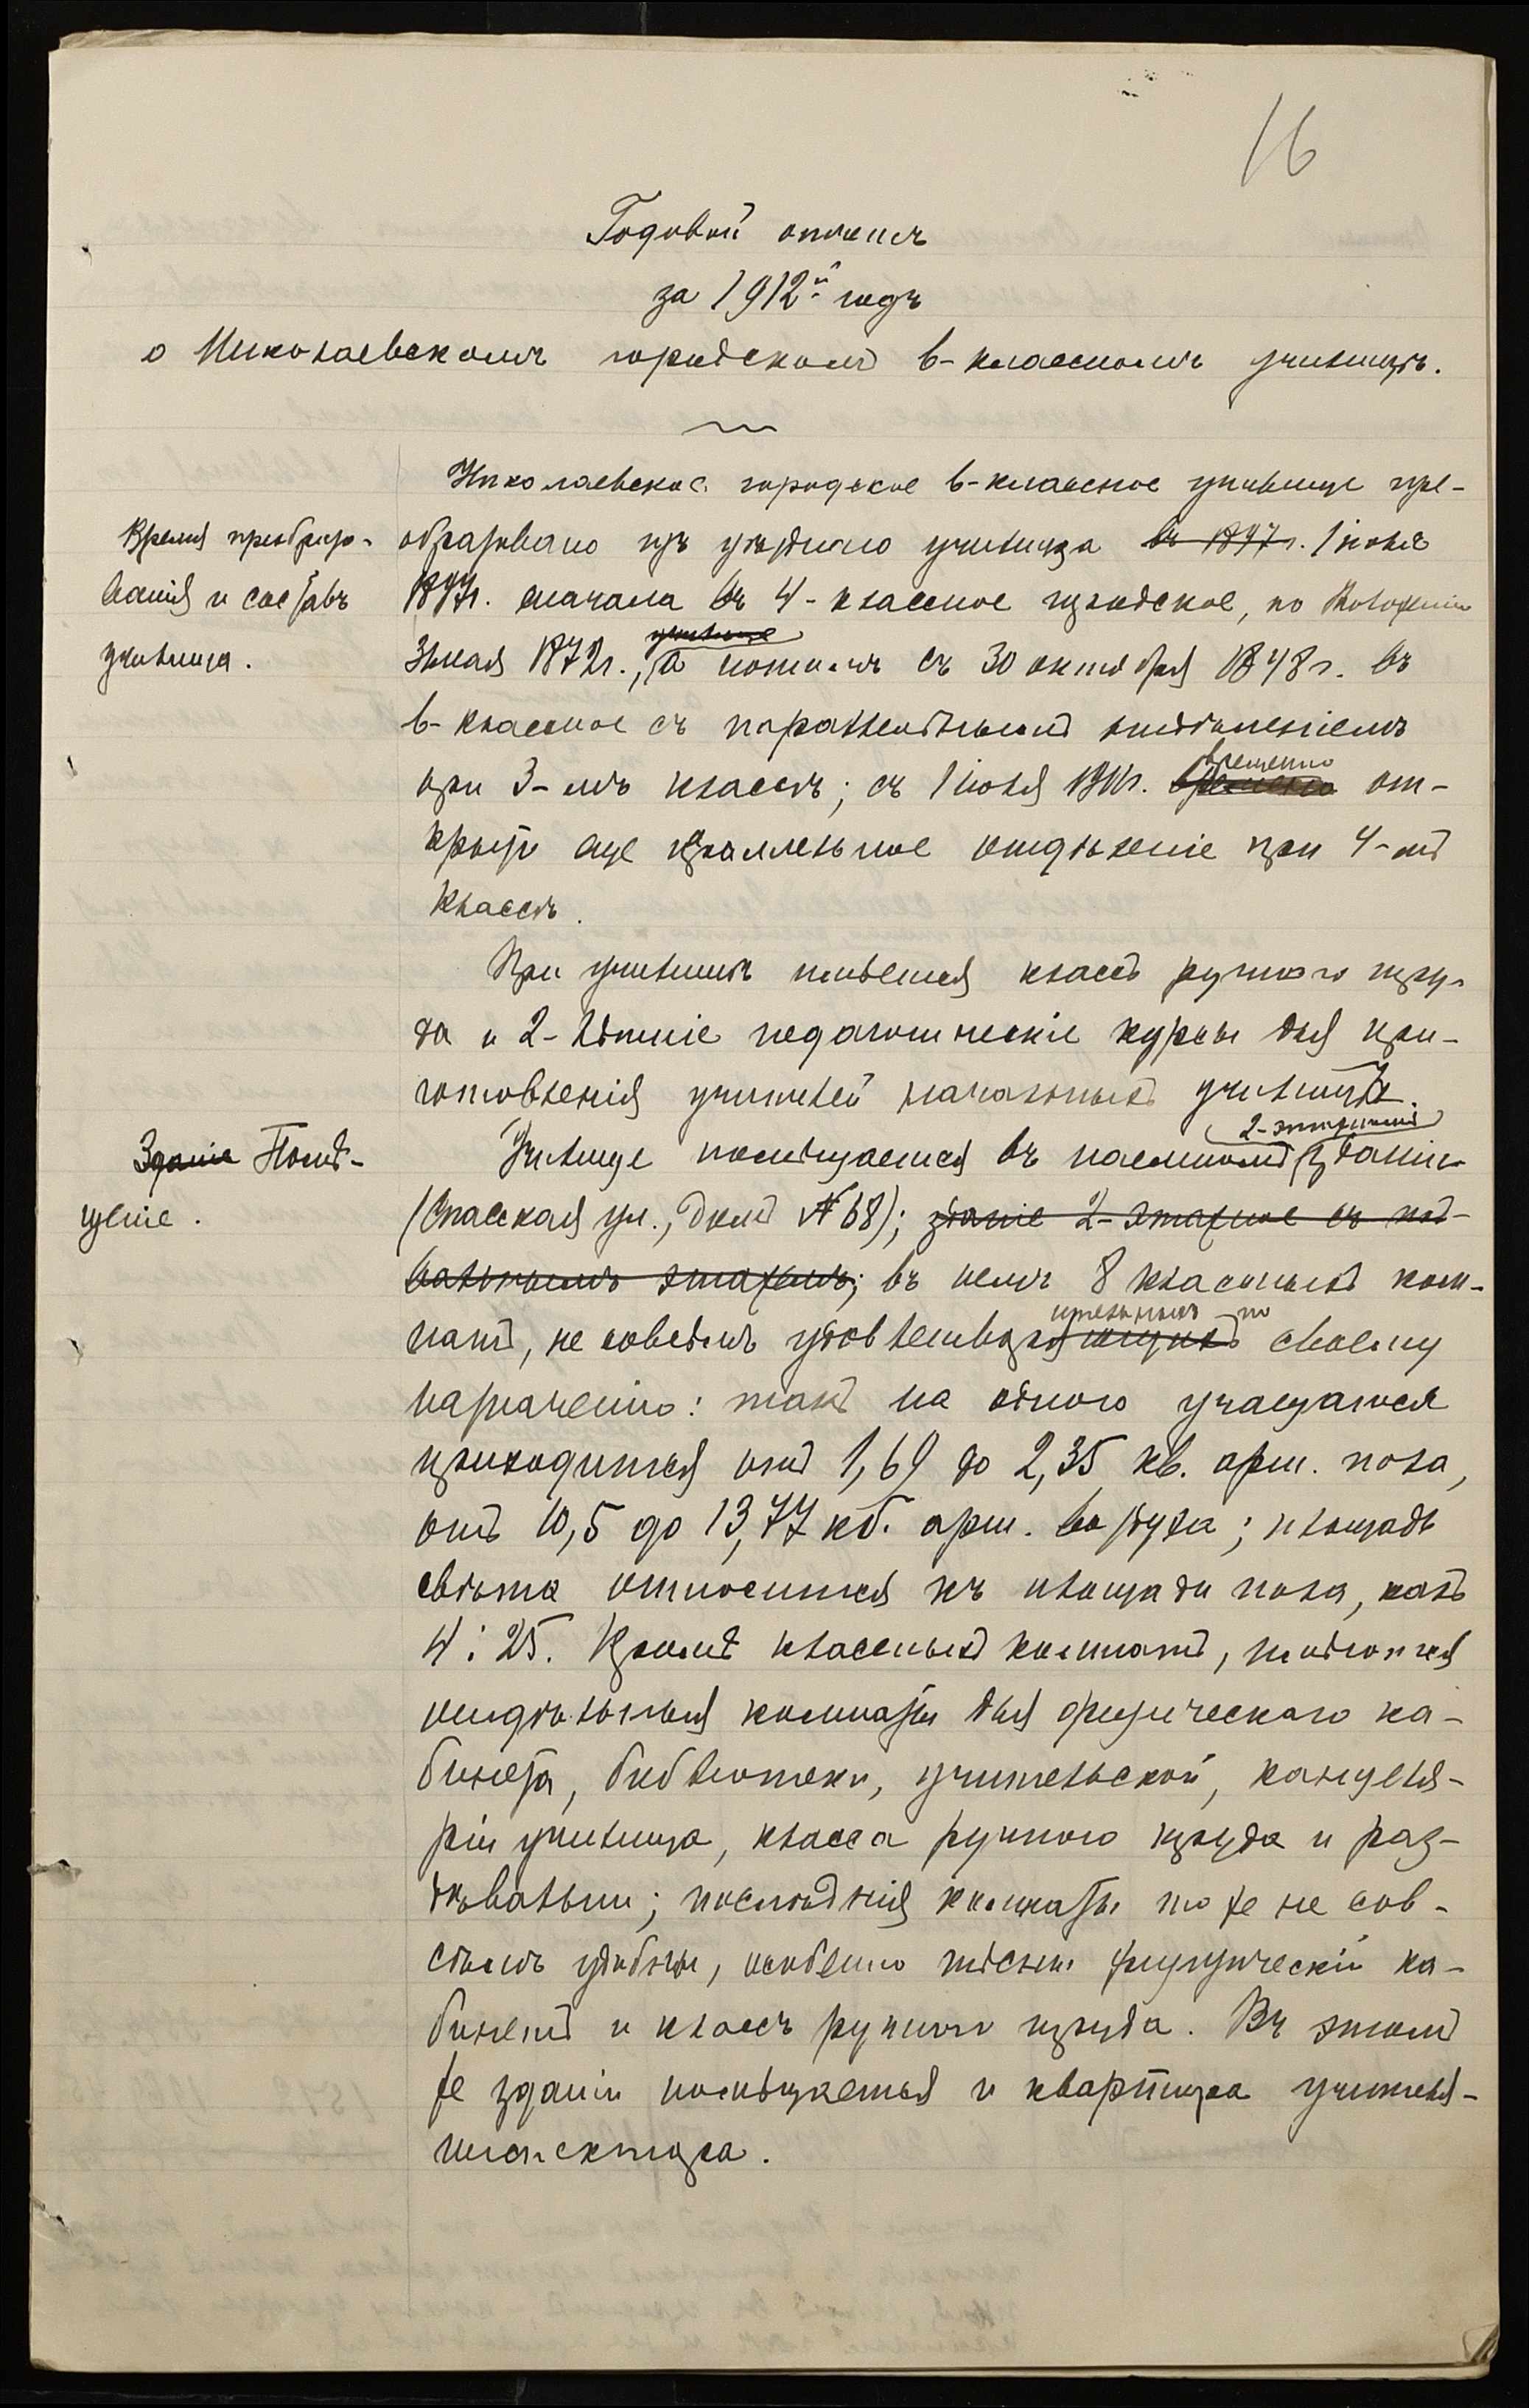 16
Годовой отчетъ
за 1912й годъ
о Николаевскомъ городскомъ 6-классномъ училищѣ.
Николаевское городское 6-классное училище пре-
Время преобразо-
вания и составъ
училища.
образовано изъ уѣзднаго училища въ 1897 г. 1 июля
1897г. сначала въ 4-классное городское, по Положенію
31 мая 1872г., училище а потомъ съ 30 октября 1898 г. въ
6-классное съ параллельнымъ отдѣленіемъ
при 3-мъ классѣ; съ 1 июля г. временно от-
крыто еще параллельное отдѣленіе при 4-мъ
классѣ.
При училищѣ имѣется классъ ручного тру-
да и 2-лѣтніе педагогическіе курсы для при-
готовленія учителей начальныхъ училищъ.
Зданіе Помѣ-
щеніе.
2-этажномъ
Училище помѣщается въ наемномъ зданіи
(Спасская ул., домъ № 68); зданіе 2-этажное съ под-
вальнымъ этажемъ; въ немъ 8 классныхъ ком-
натъ, не совсѣмъ удовлетворительныхъ по своему
назначенію: такъ на одного учащагося
приходится отъ 1,69 до 2,35 кв. арш. пола,
отъ 10,5 до 13,77 кб. арш. воздуха; площадь
свѣта относится къ площади пола, какъ
4 : 25. Кромѣ классныхъ комнатъ, имѣются
отдѣльныя комнаты для физическаго ка-
бинета, библіотеки, учительской, канцеля-
ріи училища, класса ручного труда и раз-
дѣвальни; послѣднія комнаты тоже не сов-
сѣмъ удобны, особенно тѣсны физический ка-
бинетъ и классъ ручного труда. Въ этомъ
же зданіи помѣщается и квартира учителя-
инспектора.